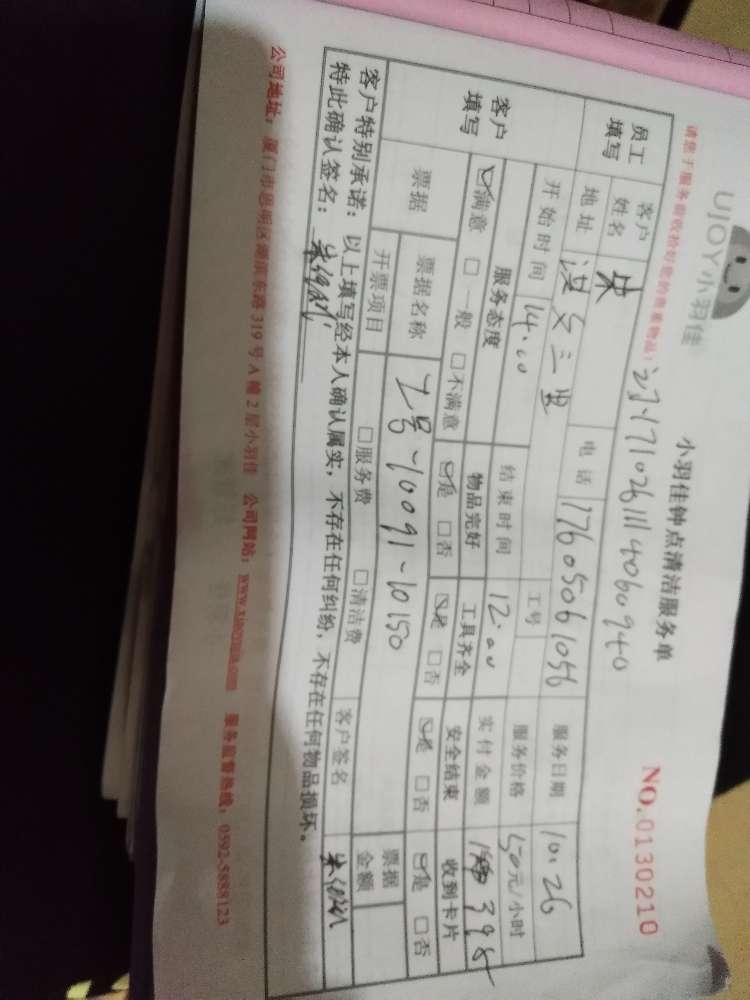 UJOY小羽佳
小羽佳钟点清洁服务单
NO.0130210
请您于服务前收拾好您的贵重物品!
员工填写 客户姓名 朱 电话 17605061056 服务日期 10.26
地址 工号 服务价格 50元/小时
客户填写 开始时间 14.00 结束时间 12.00 实付金额 398
服务态度 物品完好 工具齐全 安全结束 收到卡片
☑满意 □一般 □不满意 ☑是 □否 ☑是 □否 ☑是 □否 ☑是 □否
票据 票据名称 7号-10091-10150 票据金额
开票项目 □服务费 □清洁费 客户签名
客户特别承诺:以上填写经本人确认属实,不存在任何纠纷,不存在任何物品损坏。
特此确认签名:
公司地址:厦门市思明区湖滨东路319号A幢2层小羽佳 公司网站: 服务监督热线:0592-5888123